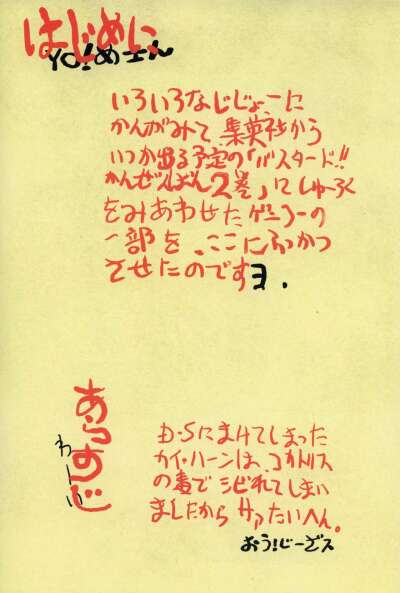 はじめに
YO!めさん
いろいろなじじょーに
かんがみて、集英社から
いつか出る予定の「バスタード!!
かんぜんばん2巻」にしゅーろく
をみあわせたゲンコーの
一部を、ここにふっかつ
させたのですヨ.
あらすじ
わーい
D・Sにまけてしまった
カイ・ハーンは、コカトリス
の毒でシビれてしまい
ましたから サァたいへん。
おう!じーざス